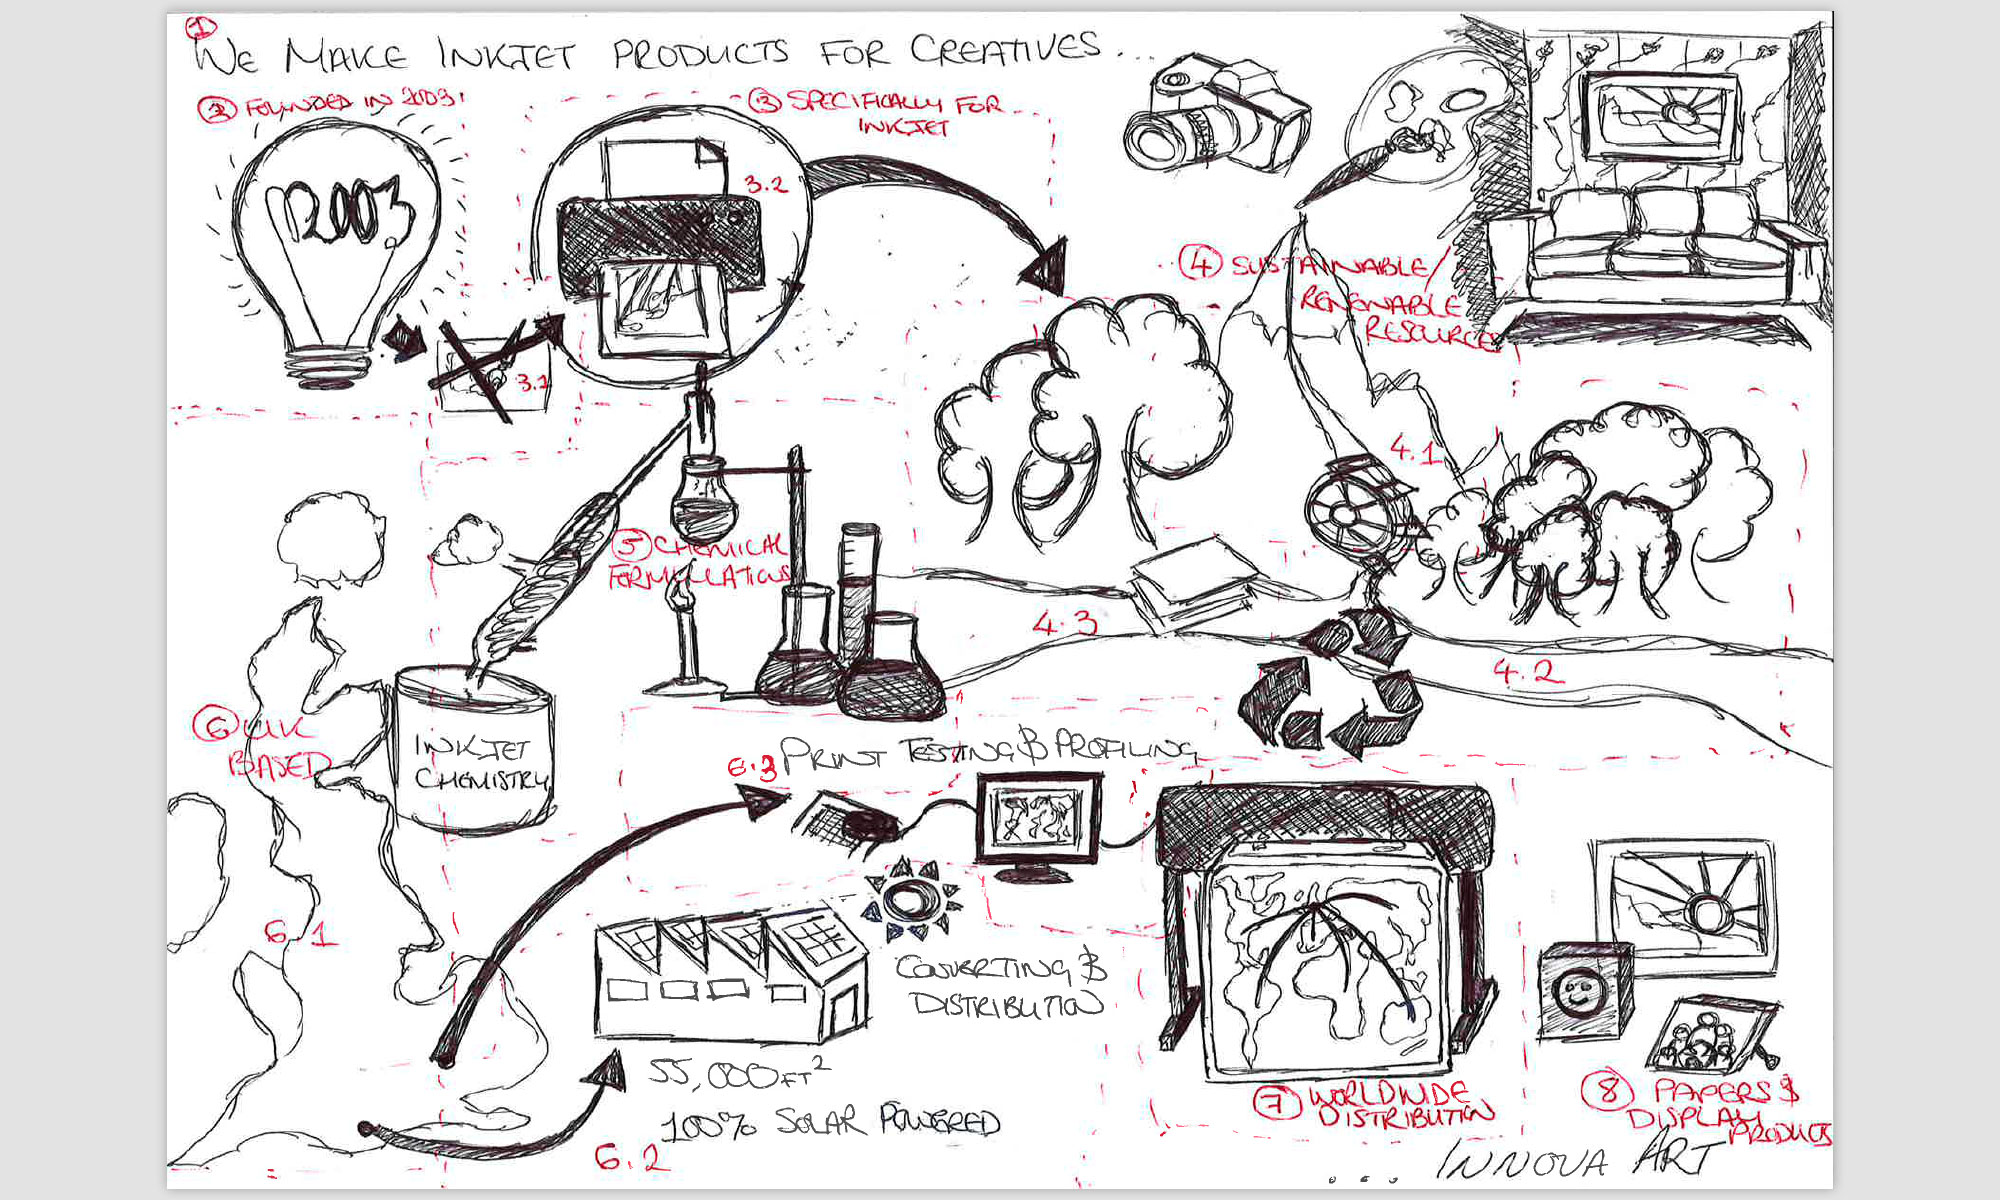 1
WE MAKE INKJET PRODUCTS FOR CREATIVES...
2 FOUNDED IN 2003!
2003
3 SPECIFICALLY FOR
INKJET
3.2
3.1
4 SUSTAINABLE/
RENEWABLE
RESOURCES
4.1
4.2
4.3
5 CHEMICAL
FORMULATIONS
6 UK
BASED
INKJET
CHEMISTRY
6.1
6.3 PRINT TESTING & PROFILING
CONVERTING &
DISTRIBUTION
55,000FT²
100% SOLAR POWERED
6.2
7 WORLDWIDE
DISTRIBUTION
8 PAPERS &
DISPLAY
PRODUCTS
... INNOVA ART